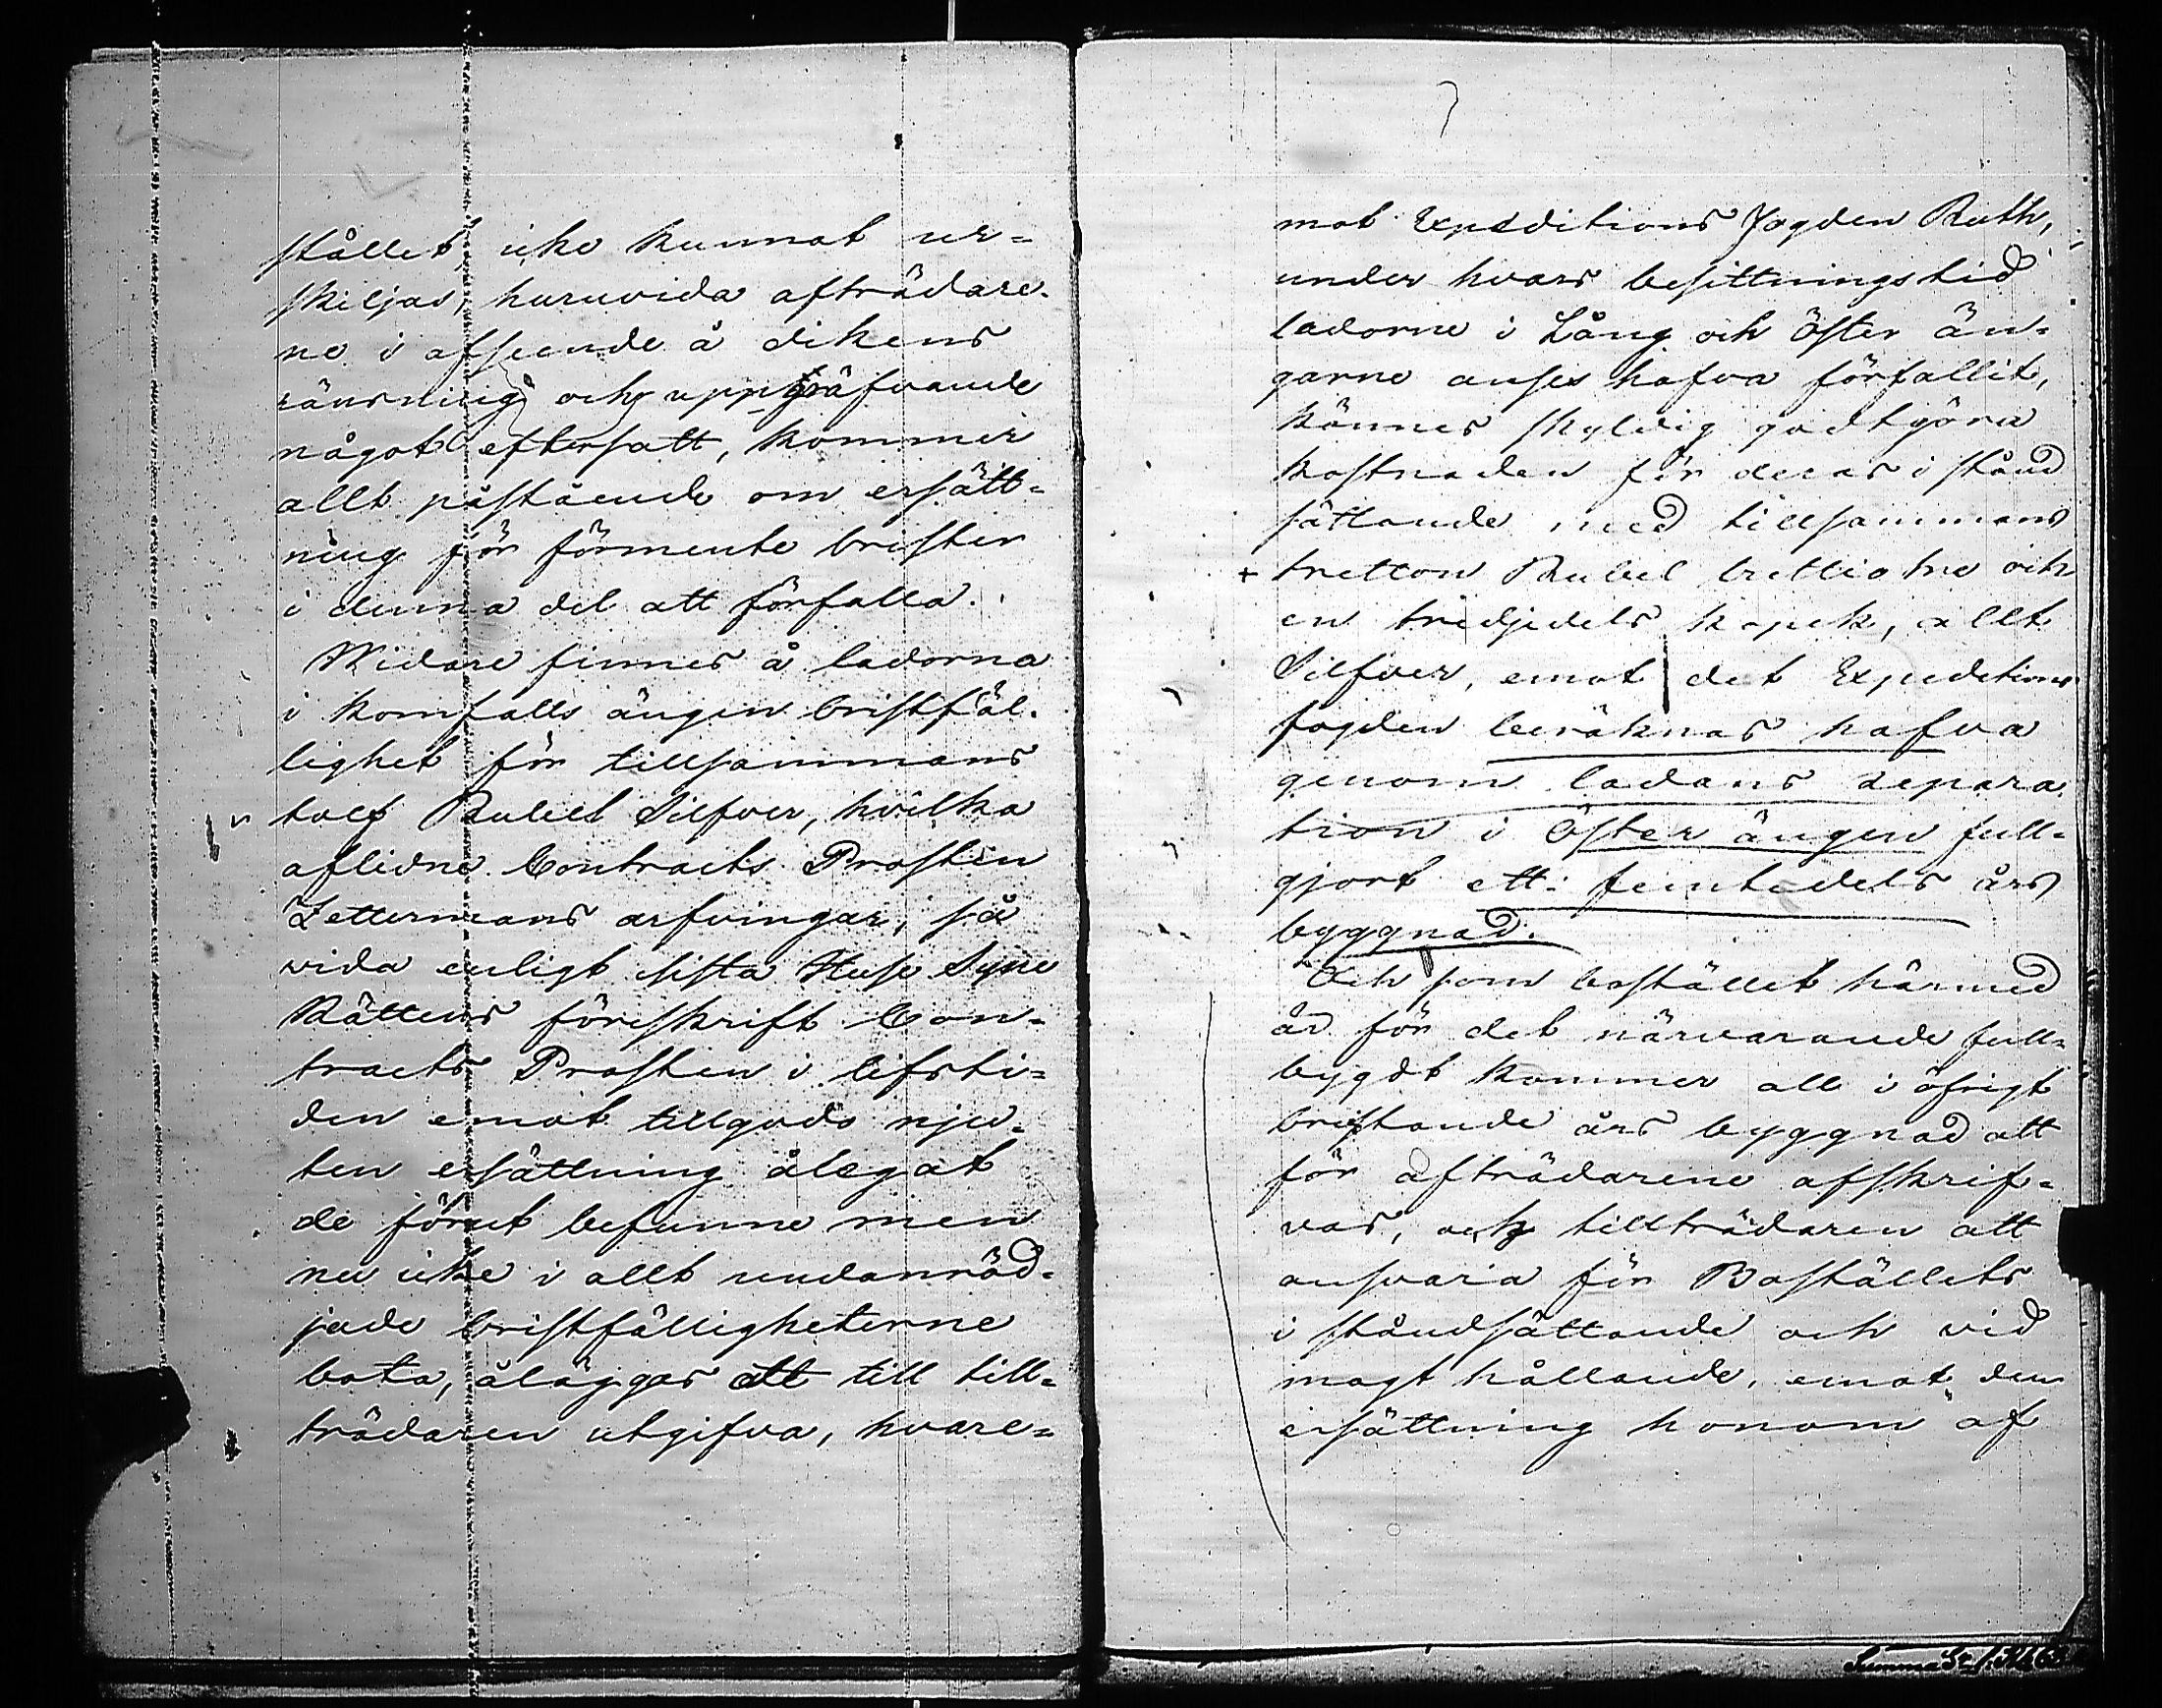 stället, icke kunnat ur=
skiljas, huruvida afträdare.
ne i afseende å dikens
ränsning och uppgräfvande
något eftersatt, kommer
allt påstående om ersätt=
ning för förmente brister
i denna del att förfalla.
Widare finnes å ladorna
i Kornfalls ängen bristfäl.
lighet för tillsammans
tolf Rubel Silfver, hvilka
aflidne Contracts Prosten
Zettermans arfvingar, så
vida enligt sista Huse Syne
Rättens föreskrift Con=
tracts Prosten i lifsti=
den emot tillgodo nju=
ten ersättning ålegat
de förut befunne men
nu icke i allt undanröd=
jade bristfälligheterne
bota, åläggas att till till=
trädaren utgifva, hvare=
mot Expeditions Fogden Ruth,
under hvars besittningstid
ladorne i Lång och Öster än=
garne anses hafva förfallit,
kännes skyldig godtgöra
kostnaden för deras i stånd
sättande med tillsammans
+ tretton Rubel trettiotre och
en tredjedels kopek, allt
Silfver, emot det Expeditions
fogden beräknas hafva
genom ladans repara
tion i Öster ängen full=
gjort ett: femtedels års
byggnad.
Och som bostället härmed
är för det närvarande full=
bygdt kommer all i öfrigt
bristande års byggnad att
för afträdarene afskrif=
vas, och tillträdaren att
ansvara för Boställets
i ståndsättande och vid
magt hållande, emot den
ersättning honom af